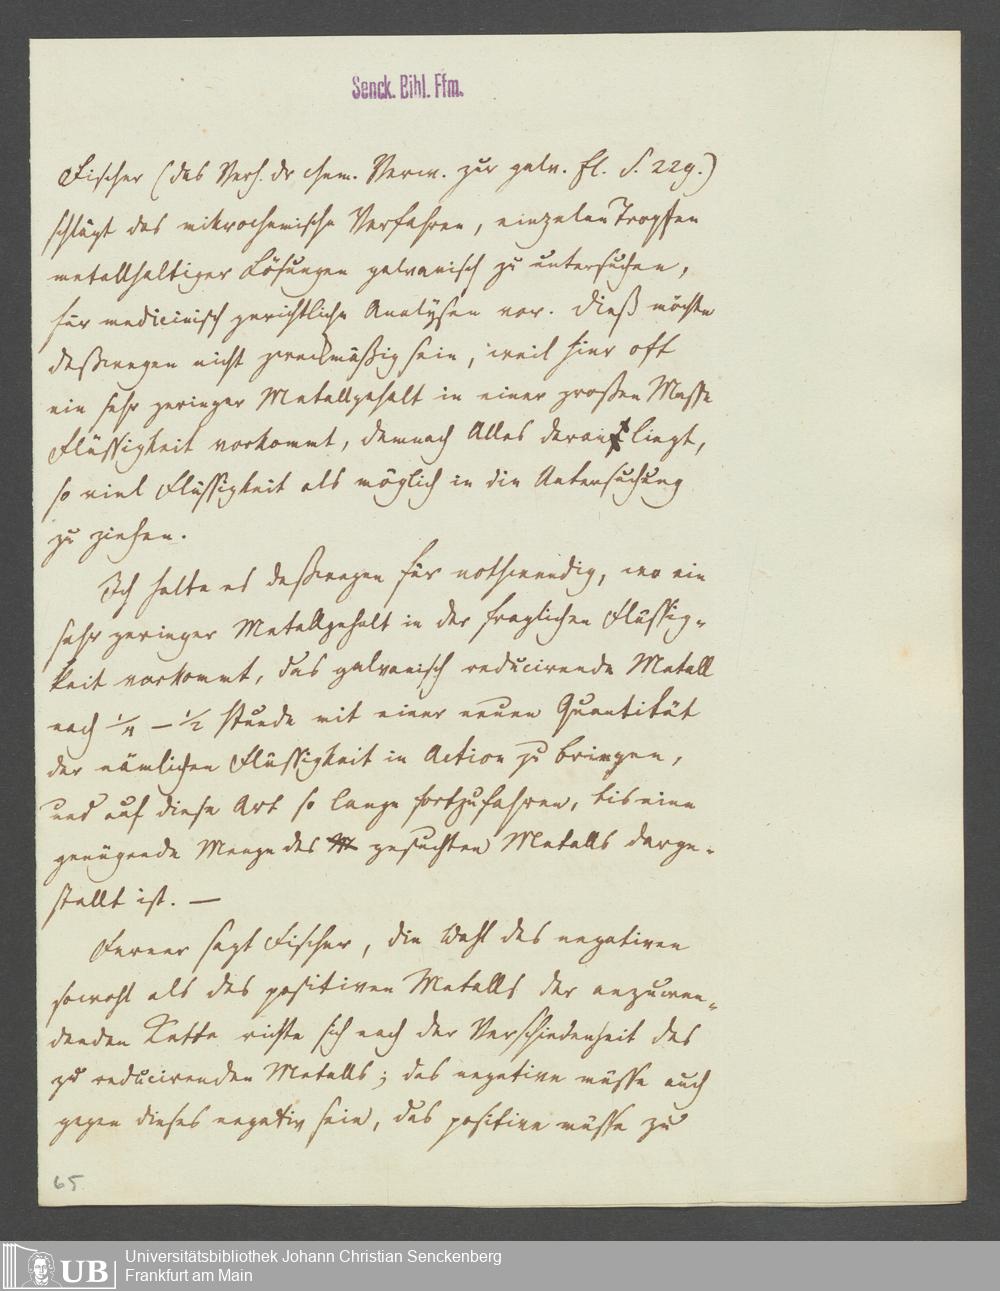 Senck. Bibl. Ffm.
Fischer (das Verh. dr chem. Verw. zur galv. El. S. 229.)
schlägt das mikrochemische Verfahren, einzelne Tropfen
metallhaltiger Lösungen galvanisch zu untersuchen,
für medicinisch gerichtliche Analysen vor. Dieß möchte
deßwegen nicht zweckmäßig sein, weil hier oft
ein sehr geringer Metallgehalt in einer großen Masse
Flüssigkeit vorkommt, demnach Alles daran liegt,
so viel Flüssigkeit als möglich in die Untersuchung
zu ziehen.
Ich halte es deßwegen für nothwendig, wo ein
sehr geringer Metallgehalt in der fraglichen Flüssig-
keit vorkommt, das galvanisch reducirende Metall
nach 1/4 – 1/2 Stunde mit einer neuen Quantität
der nämlichen Flüssigkeit in Action zu bringen,
und auf diese Art so lange fortzufahren, bis eine
genügende Menge des gesuchten Metalls darge-
stellt ist. —
Ferner sagt Fischer, die Wahl des negativen
sowohl als des positiven Metalls der anzuwen-
denden Kette richte sich nach der Verschiedenheit des
zu reducirenden Metalls; das negative müsse auch
gegen dieses negativ sein, das positive müsse zu
65
UB
Universitätsbibliothek Johann Christian Senckenberg
Frankfurt am Main